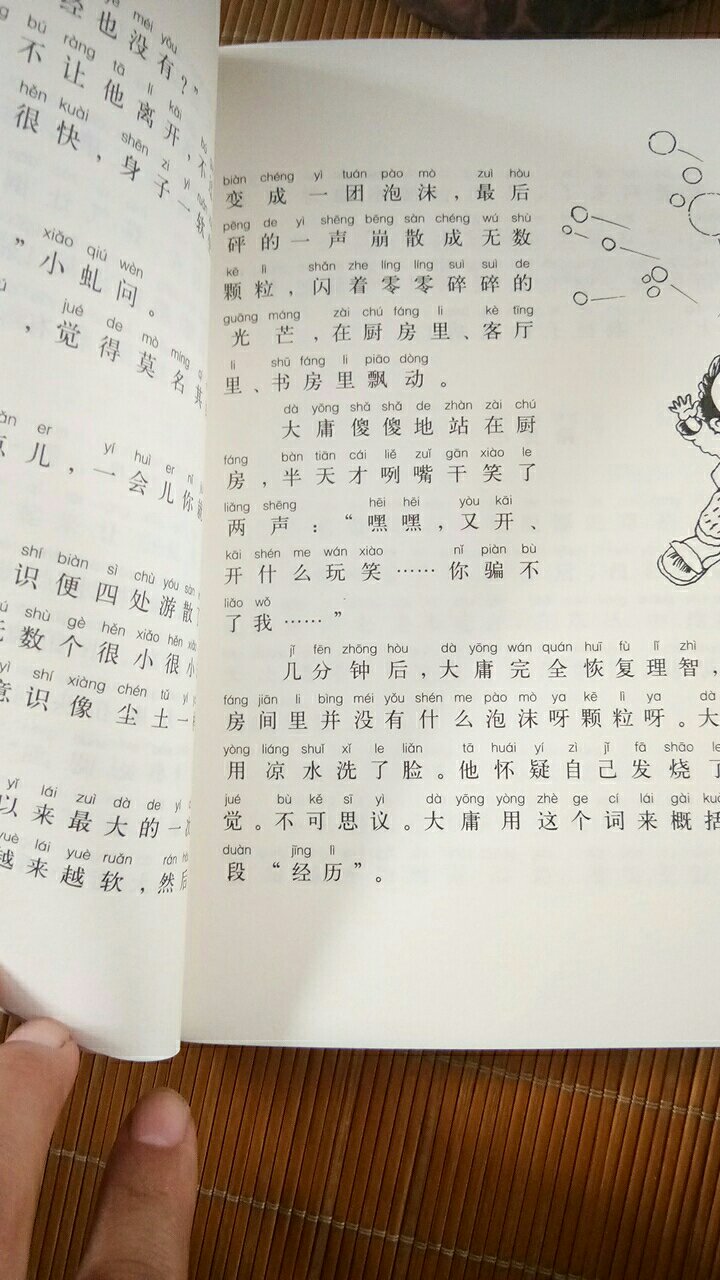 经也没有？”
不让他离开，不
很快，身子一软
”小虬问。
，觉得莫名其
点儿，一会儿你就
识便四处游散了
无数个很小很小
意识像尘土一样
以来最大的一次
越来越软，然后
biàn chéng yì tuán pào mò zuì hòu
变成一团泡沫，最后
pēng de yì shēng bēng sàn chéng wú shù
砰的一声崩散成无数
kē lì shǎn zhe líng líng suì suì de
颗粒，闪着零零碎碎的
guāng máng zài chú fáng li kè tīng
光芒，在厨房里、客厅
li shū fáng li piāo dòng
里、书房里飘动。
dà yōng shǎ shǎ de zhàn zài chú
大庸傻傻地站在厨
fáng bàn tiān cái liě zuǐ gān xiào le
房，半天才咧嘴干笑了
liǎng shēng hēi hēi yòu kāi
两声：“嘿嘿，又开、
kāi shén me wán xiào nǐ piàn bù
开什么玩笑……你骗不
liǎo wǒ
了我……”
jǐ fēn zhōng hòu dà yōng wán quán huī fù lǐ zhì
几分钟后，大庸完全恢复理智，
fáng jiān li bìng méi yǒu shén me pào mò ya kē lì ya dà
房间里并没有什么泡沫呀颗粒呀。大
yòng liáng shuǐ xǐ le liǎn tā huái yí zì jǐ fā shāo le
用凉水洗了脸。他怀疑自己发烧了
jué bù kě sī yì dà yōng yòng zhè ge cí lái gài kuò
觉。不可思议。大庸用这个词来概括
duàn jīng lì
段“经历”。